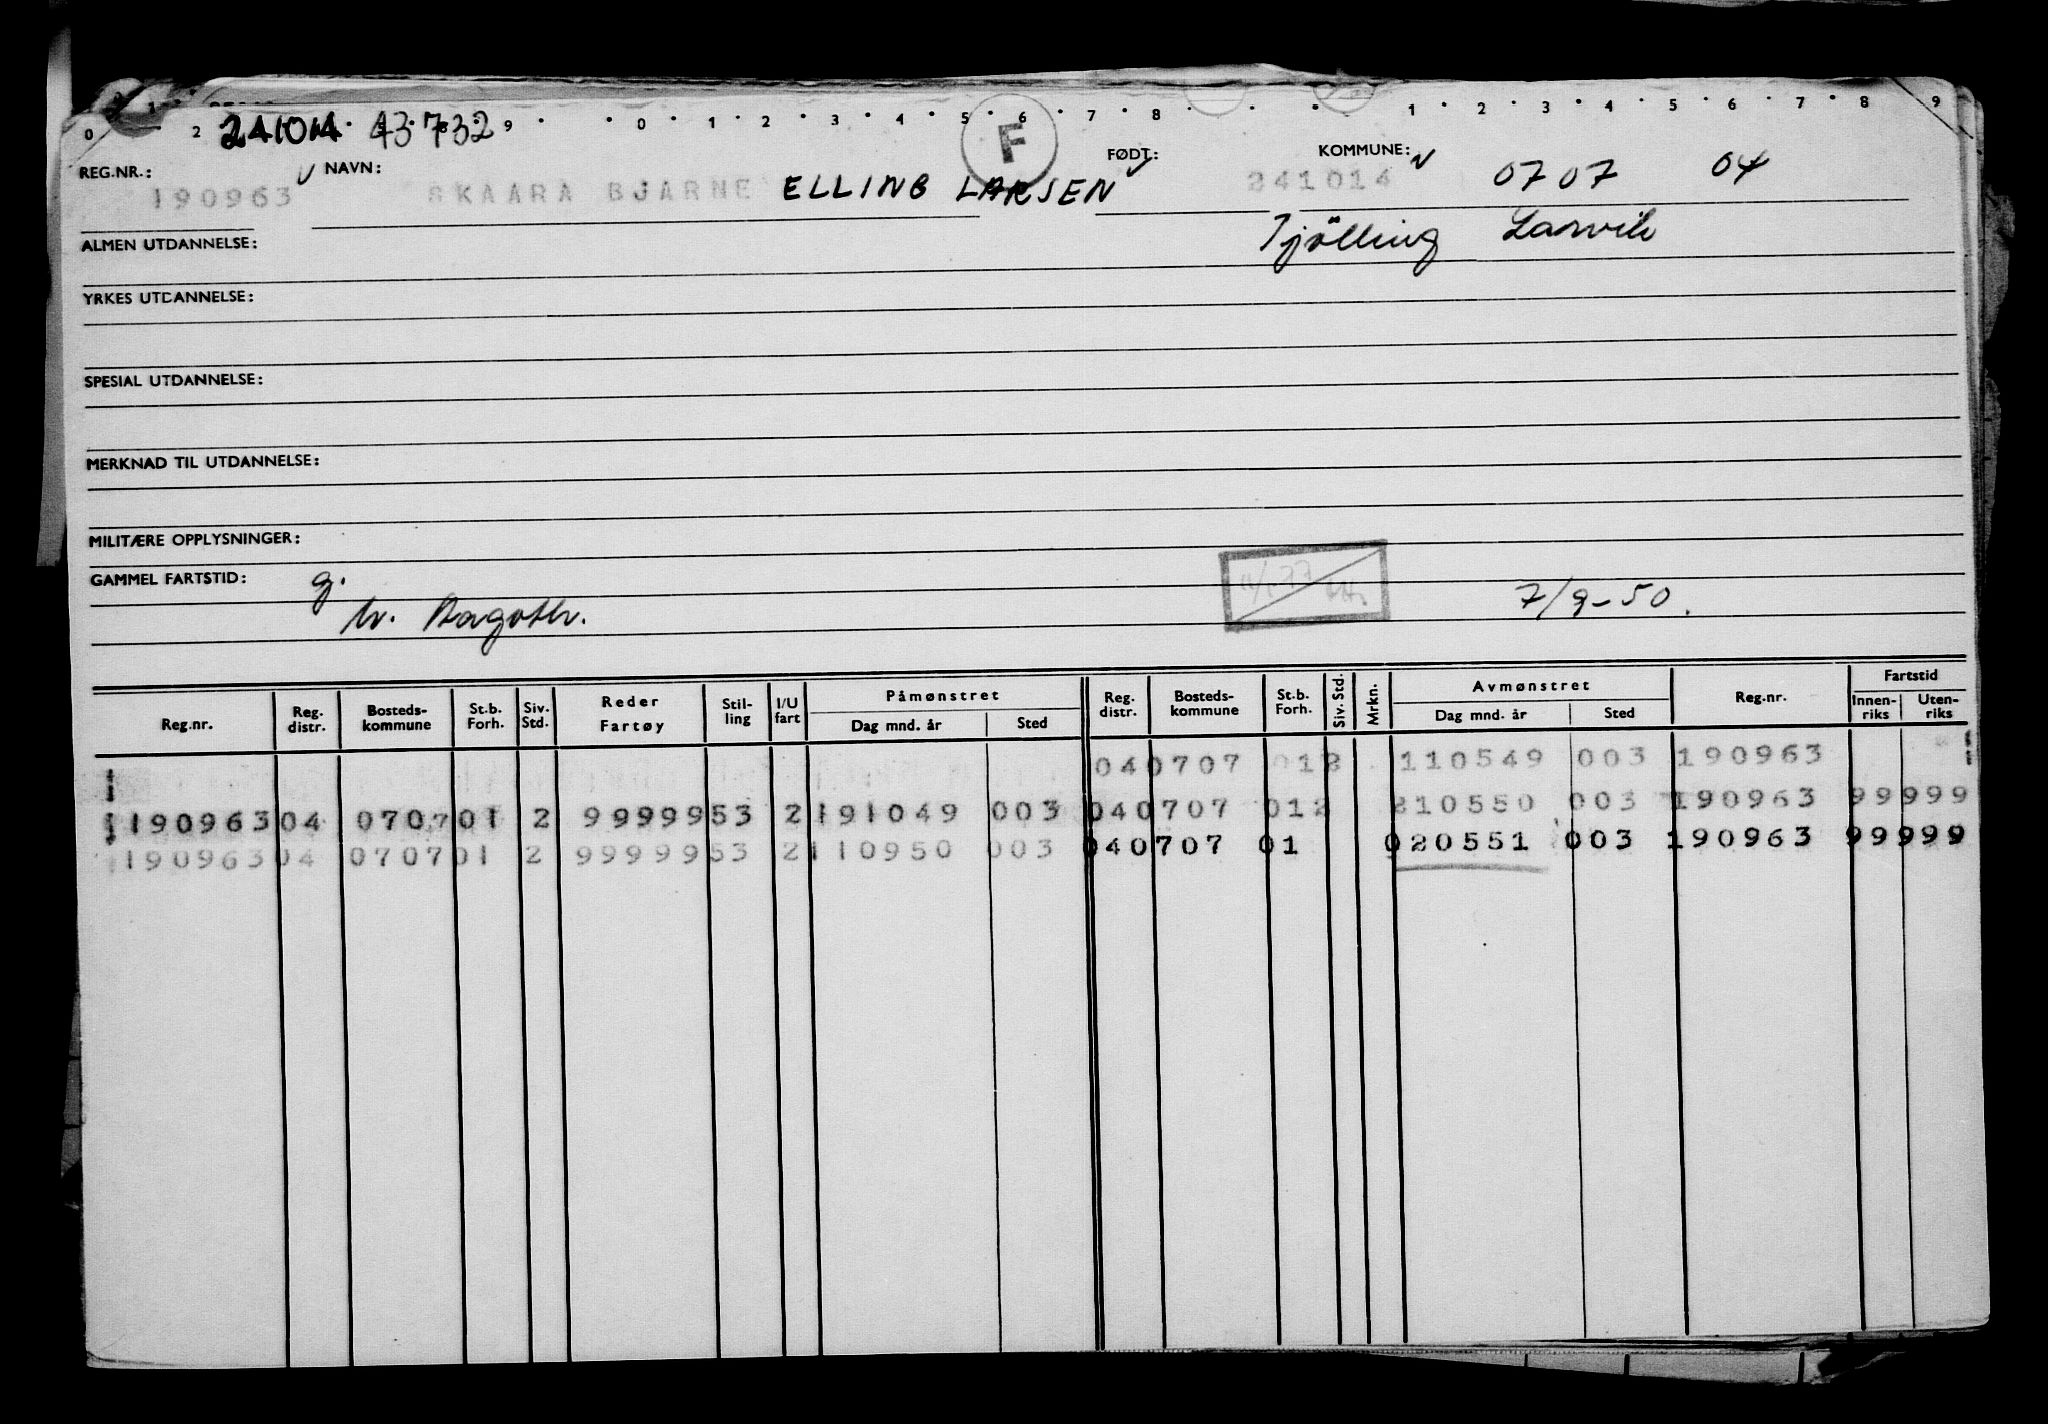 0 2 241014 43732 9 0 1 2 3 4 5 6 7 8 1 2 3 4 5 6 7 8 9
F
REG.NR.: NAVN: FØDT: KOMMUNE:
190963 SKAARA BJARNE ELLING LARSEN 241014 0707 04
ALMEN UTDANNELSE: Tjölling Larvik
YRKES UTDANNELSE:
SPESIAL UTDANNELSE:
MERKNAD TIL UTDANNELSE:
MILITÆRE OPPLYSNINGER:
GAMMEL FARTSTID: g.
7/9-50.
Reg.nr. Reg. distr. Bosteds-kommune St.b. Forh. Siv. Std. Reder Fartøy Stil-ling I/U fart Påmønstret Dag mnd. år Sted Reg. distr. Bosteds-kommune St.b. Forh. Siv. Std. Mrkn. Avmønstret Dag mnd. år Sted Reg.nr. Fartstid Innen-riks Uten-riks
040707 012 110549 003 190963
190963 04 0707 01 2 99999 53 2 191049 003 040707 012 210550 003 190963 99999
190963 04 0707 01 2 99999 53 2 110950 003 040707 01 020551 003 190963 99999